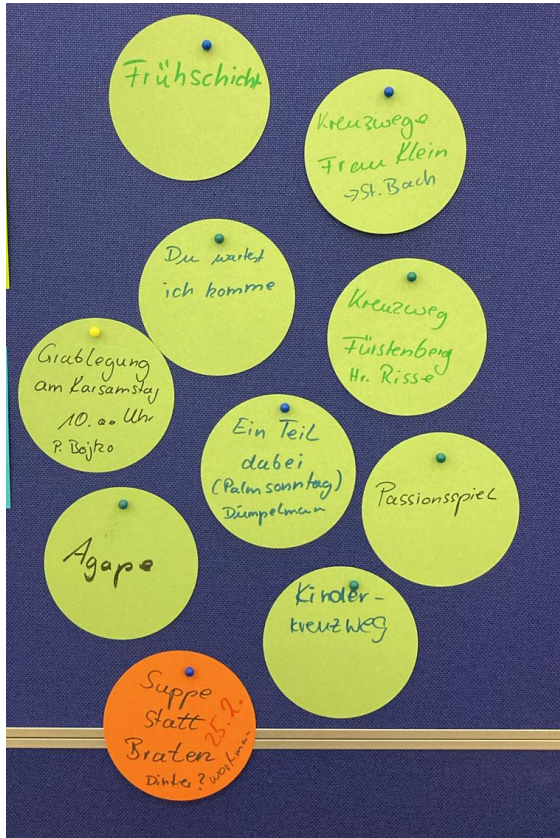 Frühschicht
Kreuzwege
Frau Klein
→ St. Bach
Du wartest
ich komme
Kreuzweg
Fürstenberg
Hr. Risse
Grablegung
am Karsamstag
10.00 Uhr
P. Bojko
Ein Teil
dabei
(Palmsonntag)
Dümpelman
Passionsspiel
Agape
Kinder-
kreuzweg
Suppe
Statt
Braten
25.2.
Dinter?